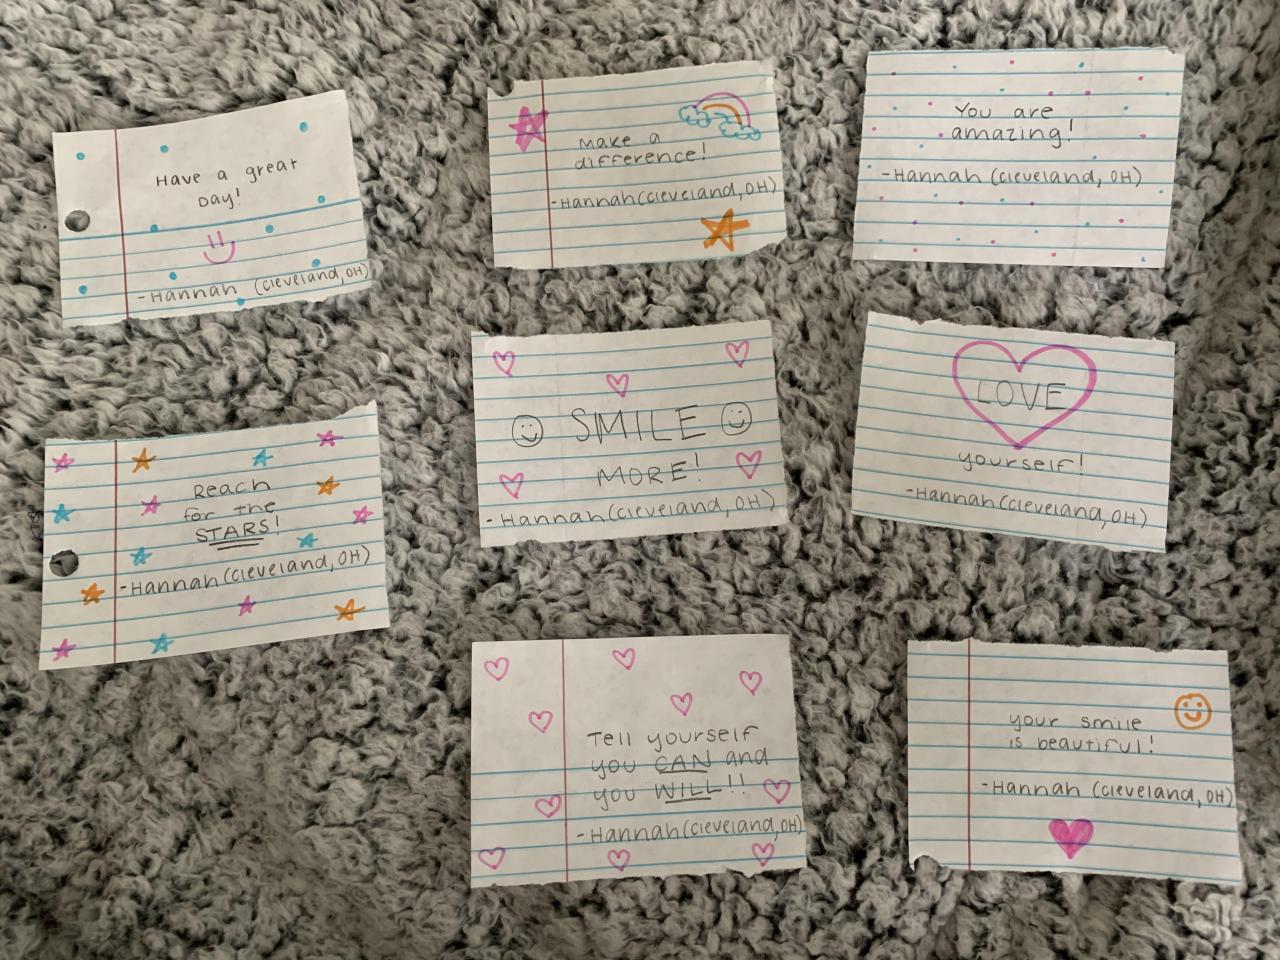 Have a great
Day!
-Hannah (Cleveland, OH)
Make a
difference!
-Hannah (Cleveland, OH)
You are
amazing!
-Hannah (Cleveland, OH)
Reach
for the
STARS!
-Hannah (Cleveland, OH)
SMILE
MORE!
-Hannah (Cleveland, OH)
LOVE
yourself!
-Hannah (Cleveland, OH)
Tell yourself
you CAN and
you WILL!!
-Hannah (Cleveland, OH)
your smile
is beautiful!
-Hannah (Cleveland, OH)